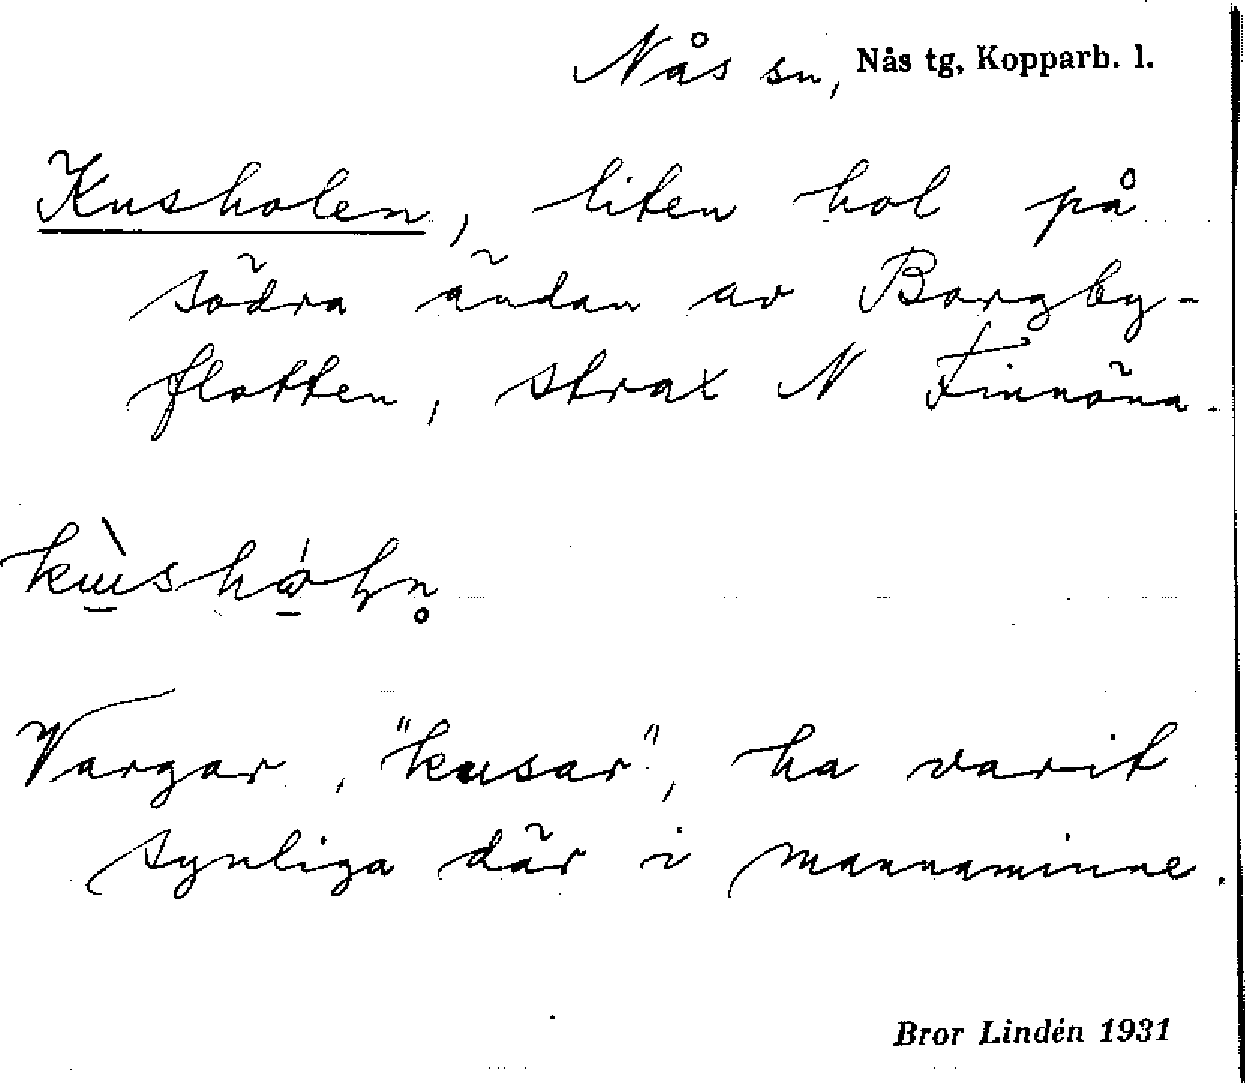 Nås sn, Nås tg, Kopparb. l.
Kusholen, liten hol på
södra ändan av Borgby-
flotten, strax N Finnöna.
Vargar, "kusar", ha varit
synliga där i mannaminne.
Bror Lindén 1931